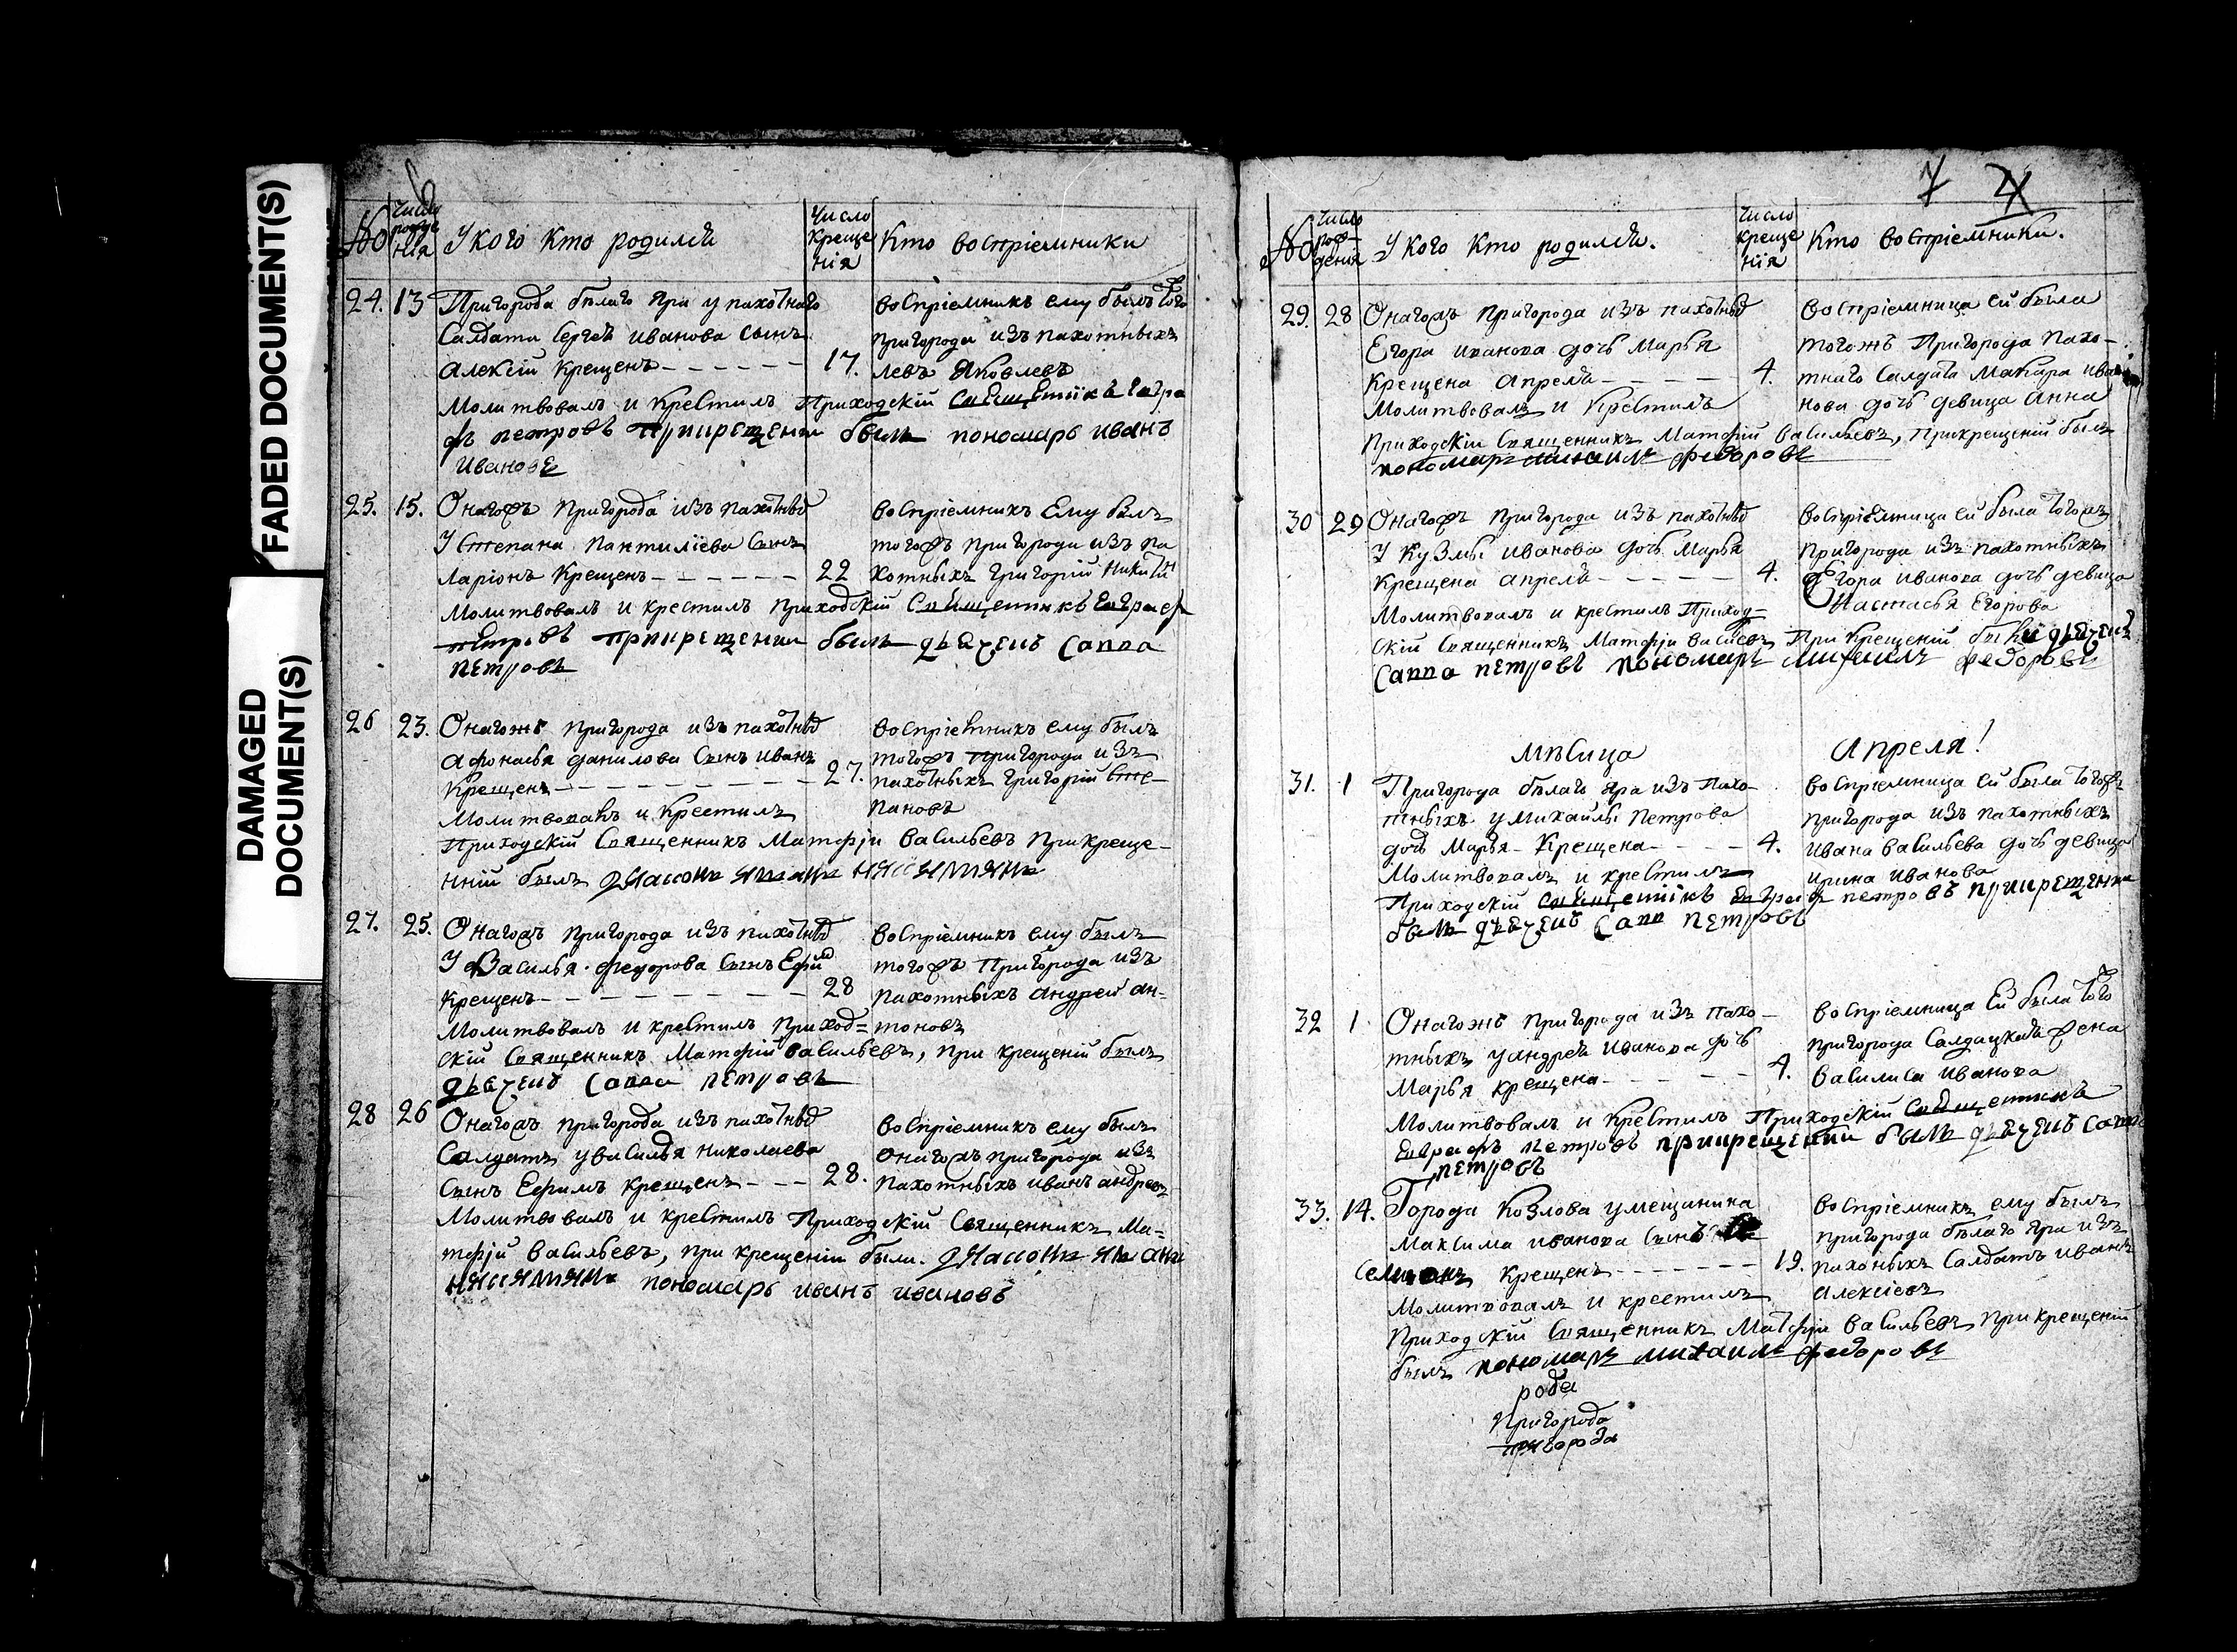 FADED DOCUMENT(S)
DAMAGED
DOCUMENT(S)
6
No
число
рожде
нія
У кого кто родился
число
креще
нія
Кто воспріемники
24. 13
Пригорода бѣлаго Яра у пахотнаго
Салдата Сергея Иванова сынъ
Алексій Крещенъ
17.
Молитвовалъ и Крестилъ Приходскій Священникъ Евгра
фъ петровъ прикрещении былъ пономарь иванъ
ивановъ
воспріемникъ ему былъ того
пригорода изъ пахотныхъ
левъ Яковлевъ
25. 15.
Онагожъ Пригорода изъ пахотныхъ
У Степана Пантилѣева Сынъ
Ларіонъ Крещенъ
22
Молитвовалъ и крестилъ приходскій Священникъ Евграф
петровъ прикрещении былъ дьячекъ Саппа
петровъ
воспріемникъ Ему былъ
тогожъ пригорода изъ па
хотныхъ Григорій Никити
26 23.
Онагожъ пригорода изъ пахотныхъ
Афонасья данилова Сынъ иванъ
Крещенъ
27.
Молитвовалъ и Крестилъ
Приходскій Священникъ Матфѣи Васильевъ Прикреще-
нній былъ
воспріемникъ ему былъ
тогожъ Пригорода изъ
пахотныхъ Григорій Сте-
пановъ
27. 25.
Онагожъ пригорода изъ пахотныхъ
У Василья федорова Сынъ Ефим
Крещенъ
28
Молитвовалъ и крестилъ приход=
скій Священникъ Матфій Васильевъ, при крещеній былъ
дьячекъ Саппа петровъ
воспріемникъ ему былъ
тогожъ Пригорода изъ
пахотныхъ андрей ан=
тоновъ
28 26
Онагожъ пригорода изъ пахотныхъ
Салдатъ у василья николаева
Сынъ Ефимъ крещенъ
28.
Молитвовалъ и крестилъ Приходскій Священникъ Ма=
тфѣй Васильевъ, при крещеніи были.
пономарь иванъ ивановъ
воспріемникъ ему былъ
онагожъ пригорода изъ
пахотныхъ иванъ андреевъ
7 4
No
число
рож-
денія
У кого Кто родился.
число
креще
нія
Кто воспріемники.
29. 28
Онагожъ пригорода изъ пахотныхъ
Егора иванова дочь Марья
Крещена апреля
4.
Молитвовалъ и Крестилъ
Приходскіи Священникъ Матфій Васильевъ, Прикрещеній былъ
пономарь михаилъ федоровъ
воспріемница ей была
тогожъ Пригорода Пахо-
тнаго Салдата Макара ива
нова дочь девица Анна
30 29
Онагожъ пригорода изъ пахотныхъ
У Кузмы иванова дочь Марья
Крещена апреля
4.
Молитвовалъ и крестилъ Приход=
скій Священникъ Матфѣи Васильевъ При Крещеній былъ дьячекъ
Саппа петровъ пономарь михаилъ федоровъ
воспріемница ей была тогожъ
пригорода изъ пахотныхъ
Егора иванова дочь девица
Настасья Егорова
Мѣсица Апреля!
31. 1
Пригорода бѣлаго Яра изъ Пахо-
тныхъ у михайлы Петрова
дочь Марья Крещена
4.
Молитвовалъ и крестилъ
Приходскій Священникъ Евграфъ петровъ прикрещении
былъ дьячекъ Сапп петровъ
воспріемница ей была тогожъ
пригорода изъ пахотныхъ
Ивана Васильева дочь девица
ирина иванова
32 1
Онагожъ пригорода изъ Пахо-
тныхъ у андрея иванова дочь
Марья крещена
4.
Молитвовалъ и Крестилъ Приходскій Священникъ
Евграфъ петровъ прикрещении былъ дьячекъ Саппа
петровъ
воспріемница ей была того
пригорода Салдацкая жена
Василиса иванова
33. 14.
Города Козлова у мещанина
Максима иванова Сынъ
крещенъ
19.
Молитвовалъ и крестилъ
Приходскій Священникъ Матфѣи Васильевъ прикрещеній
былъ пономарь михаилъ федоровъ
воспріемникъ ему былъ
пригорода бѣлаго Яра изъ
пахотныхъ Салдатъ иванъ
алексѣевъ
рода
пригорода
пригорода